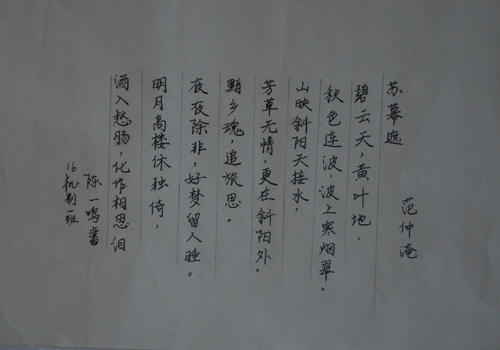 苏幕遮
范仲淹
碧云天，黄叶地，
秋色连波，波上寒烟翠。
山映斜阳天接水，
芳草无情，更在斜阳外。
黯乡魂，追旅思。
夜夜除非，好梦留人睡。
明月高楼休独倚，
酒入愁肠，化作相思泪
陈一鸣书
16机制一班